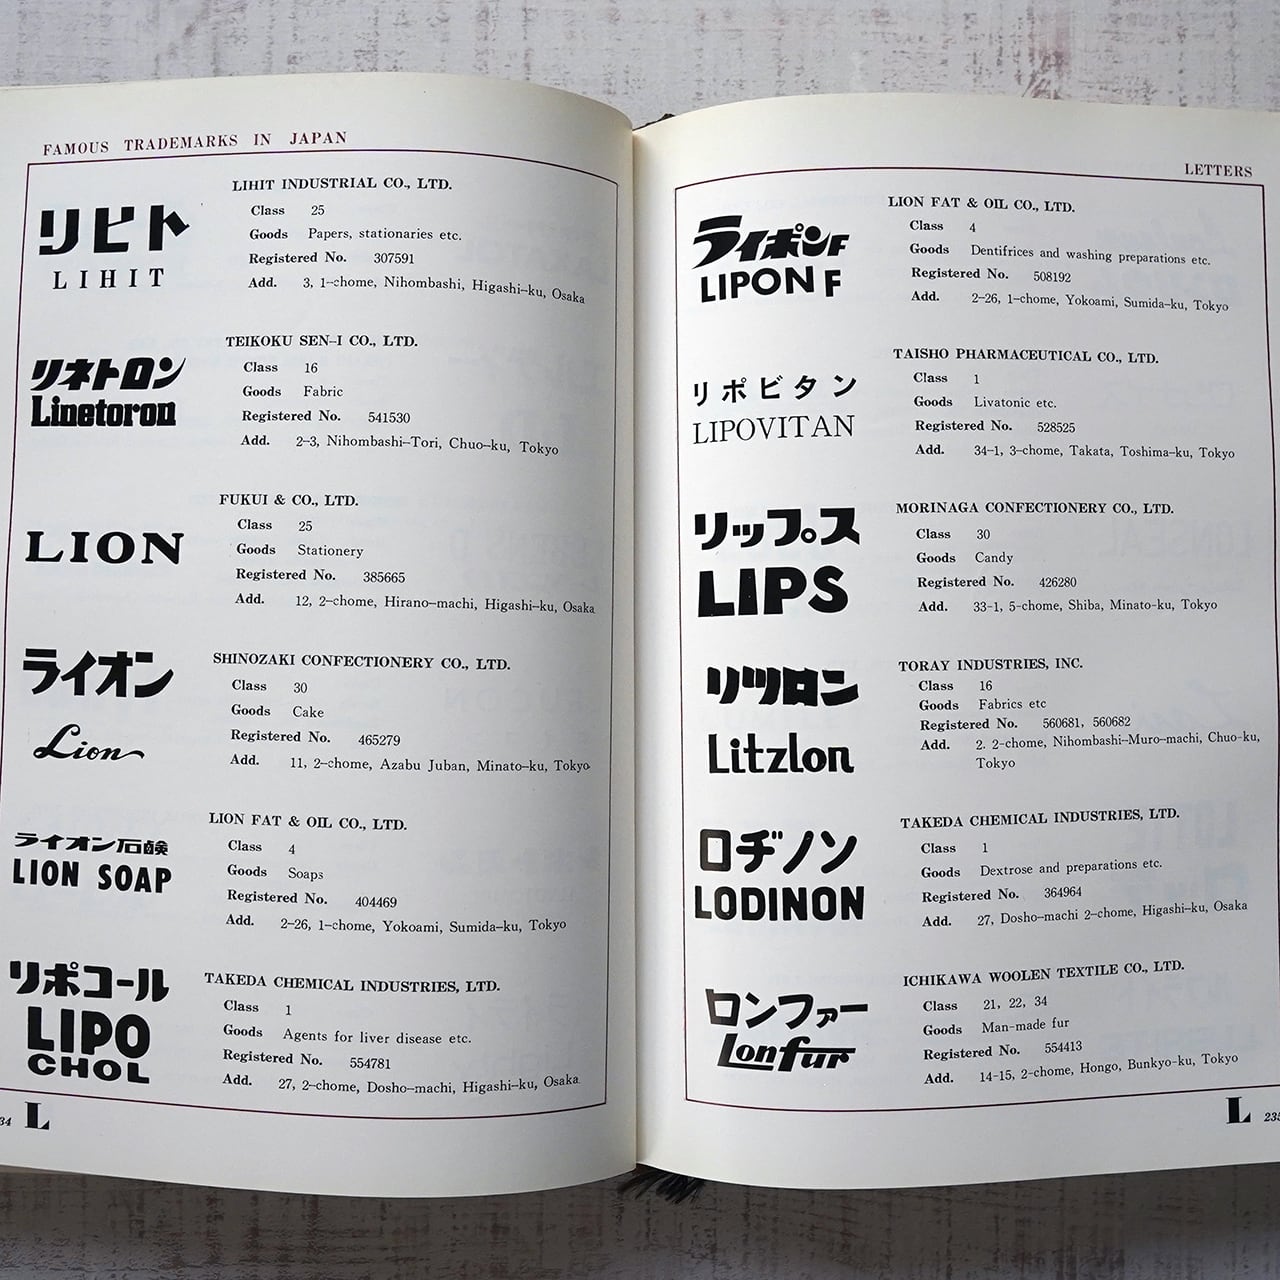 FAMOUS TRADEMARKS IN JAPAN
リヒト
LIHIT
LIHIT INDUSTRIAL CO., LTD.
Class 25
Goods Papers, stationaries etc.
Registered No. 307591
Add. 3, 1-chome, Nihombashi, Higashi-ku, Osaka
リネトロン
Linetoron
TEIKOKU SEN-I CO., LTD.
Class 16
Goods Fabric
Registered No. 541530
Add. 2-3, Nihombashi-Tori, Chuo-ku, Tokyo
LION
FUKUI & CO., LTD.
Class 25
Goods Stationery
Registered No. 385665
Add. 12, 2-chome, Hirano-machi, Higashi-ku, Osaka
ライオン
Lion
SHINOZAKI CONFECTIONERY CO., LTD.
Class 30
Goods Cake
Registered No. 465279
Add. 11, 2-chome, Azabu Juban, Minato-ku, Tokyo
ライオン石鹸
LION SOAP
LION FAT & OIL CO., LTD.
Class 4
Goods Soaps
Registered No. 404469
Add. 2-26, 1-chome, Yokoami, Sumida-ku, Tokyo
リポコール
LIPO
CHOL
TAKEDA CHEMICAL INDUSTRIES, LTD.
Class 1
Goods Agents for liver disease etc.
Registered No. 554781
Add. 27, 2-chome, Dosho-machi, Higashi-ku, Osaka
34 L
LETTERS
ライポンF
LIPON F
LION FAT & OIL CO., LTD.
Class 4
Goods Dentifrices and washing preparations etc.
Registered No. 508192
Add. 2-26, 1-chome, Yokoami, Sumida-ku, Tokyo
リポビタン
LIPOVITAN
TAISHO PHARMACEUTICAL CO., LTD.
Class 1
Goods Livatonic etc.
Registered No. 528525
Add. 34-1, 3-chome, Takata, Toshima-ku, Tokyo
リップス
LIPS
MORINAGA CONFECTIONERY CO., LTD.
Class 30
Goods Candy
Registered No. 426280
Add. 33-1, 5-chome, Shiba, Minato-ku, Tokyo
リツロン
Litzlon
TORAY INDUSTRIES, INC.
Class 16
Goods Fabrics etc
Registered No. 560681, 560682
Add. 2. 2-chome, Nihombashi-Muro-machi, Chuo-ku,
Tokyo
ロヂノン
LODINON
TAKEDA CHEMICAL INDUSTRIES, LTD.
Class 1
Goods Dextrose and preparations etc.
Registered No. 364964
Add. 27, Dosho-machi 2-chome, Higashi-ku, Osaka
ロンファー
Lonfur
ICHIKAWA WOOLEN TEXTILE CO., LTD.
Class 21, 22, 34
Goods Man-made fur
Registered No. 554413
Add. 14-15, 2-chome, Hongo, Bunkyo-ku, Tokyo
L 235